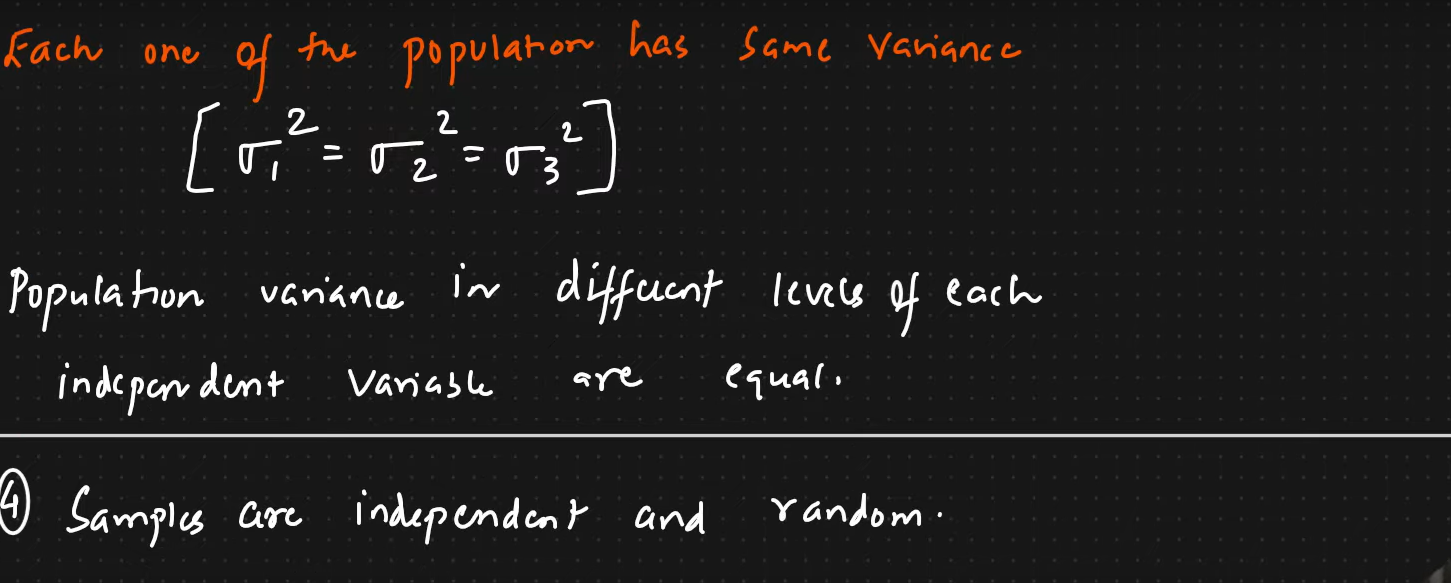 Each one of the population has same variance
[σ₁² = σ₂² = σ₃²]
Population variance in different levels of each
independent variable are equal.
④ Samples are independent and random.